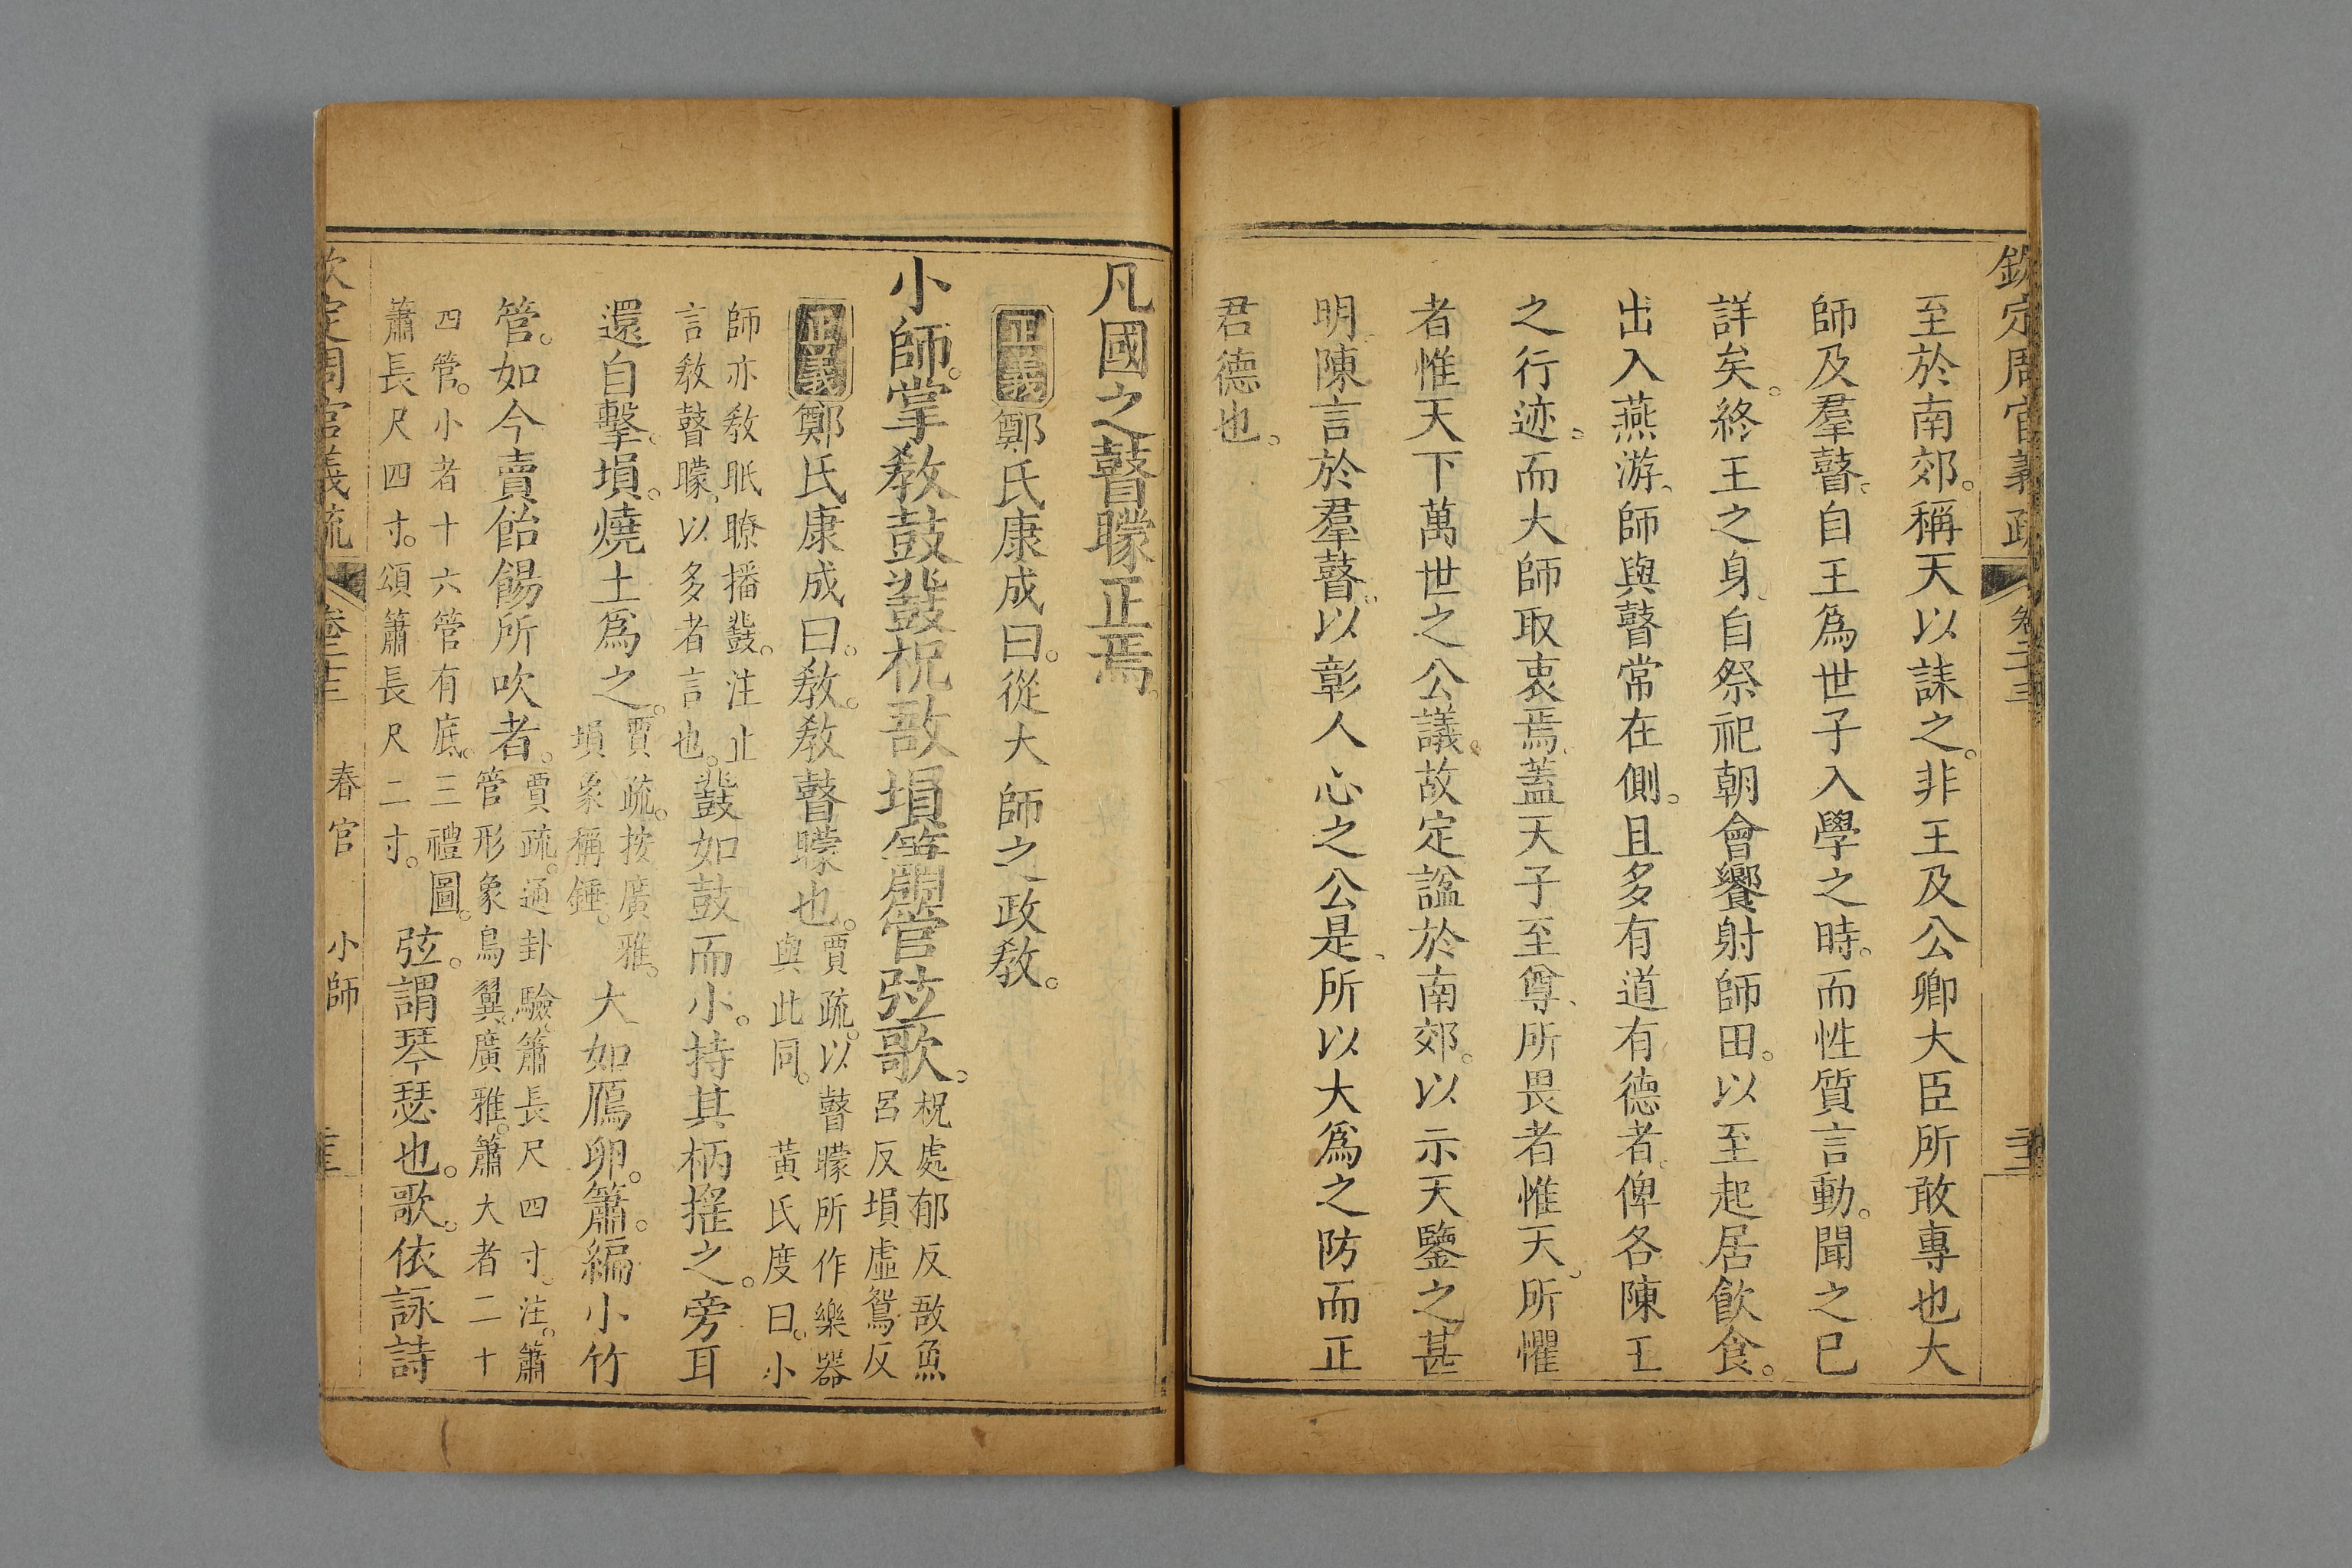 欽定周官義疏 卷二十三
至於南郊。稱天以誄之。非王及公卿大臣所敢專也大
師及羣瞽。自王爲世子入學之時。而性質言動。聞之已
詳矣。終王之身。自祭祀朝會饗射師田。以至起居飮食。
出入燕游。師與瞽常在側。且多有道有德者。俾各陳王
之行迹。而大師取衷焉。蓋天子至尊、所畏者惟天。所懼
者惟天下萬世之公議。故定諡於南郊。以示天鑒之甚
明。陳言於羣瞽。以彰人心之公是、所以大爲之防而正
君德也。
凡國之瞽矇正焉。
正義鄭氏康成曰。從大師之政敎。
小師。掌敎鼓鼗柷敔塤簫管弦歌。柷處郁反敔魚
呂反塤虛鴛反
正義鄭氏康成曰。敎。敎瞽矇也。賈疏。以瞽矇所作樂器
與此同。 黃氏度曰。小
師亦敎眂瞭播鼗。注止
言敎瞽矇、以多者言也。鼗如鼓而小。持其柄搖之。旁耳
還自擊。塤。燒土爲之。賈疏。按廣雅。
塤象稱錘。大如鴈卵。簫。編小竹
管。如今賣飴餳所吹者。賈疏。通卦驗。簫長尺四寸。注。簫
管形象鳥翼。廣雅。簫大者二十
四管。小者十六管有底。三禮圖。
簫長尺四寸。頌簫長尺二寸。弦。謂琴瑟也。歌。依詠詩
春官 小師